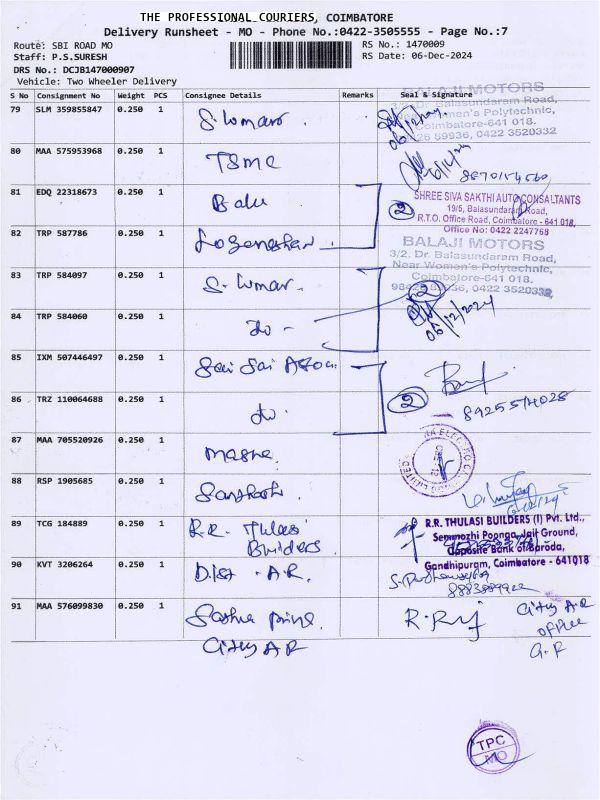 THE PROFESSIONAL COURIERS, COIMBATORE
Delivery Runsheet - MO - Phone No.:0422-3505555 - Page No.:7
Route: SBI ROAD MO
RS No.: 1470009
Staff: P.S.SURESH
RS Date: 06-Dec-2024
DRS No.: DCJB147000907
Vehicle: Two Wheeler Delivery
S No Consignment No Weight PCS Consignee Details Remarks Seal & Signature
79 SLM 359855847 0.250 1 S. Kumar.
BALAJI MOTORS
3/2, Dr. Balasundaram Road,
Near Women's Polytechnic,
Coimbatore-641 018.
0422 3520332
80 MAA 575953968 0.250 1 TSMC
81 EDQ 22318673 0.250 1 Balu
2
SHREE SIVA SAKTHI AUTO CONSULTANTS
19/5, Balasundaram Road,
R.T.O. Office Road, Coimbatore - 641 018,
Office No: 0422 2247768
82 TRP 587786 0.250 1 Loganathan
BALAJI MOTORS
3/2, Dr. Balasundaram Road,
Near Women's Polytechnic,
Coimbatore-641 018.
0422 3520332
83 TRP 584097 0.250 1 S. Kumar.
2
06/12/2024
84 TRP 584060 0.250 1 do -
85 IXM 507446497 0.250 1 Sai Sai
86 TRZ 110064688 0.250 1 do.
2
87 MAA 705520926 0.250 1
88 RSP 1905685 0.250 1 Santhosh.
89 TCG 184889 0.250 1 R.R. Thulasi
Builders
R.R. THULASI BUILDERS (I) Pvt. Ltd.,
Semmozhi Poonga, Jail Ground,
Opposite Bank of Baroda,
Gandhipuram, Coimbatore - 641018
90 KVT 3206264 0.250 1 Dist. A.R.
91 MAA 576099830 0.250 1
City A R
R. Raj
City A.R
office
TPC
MO